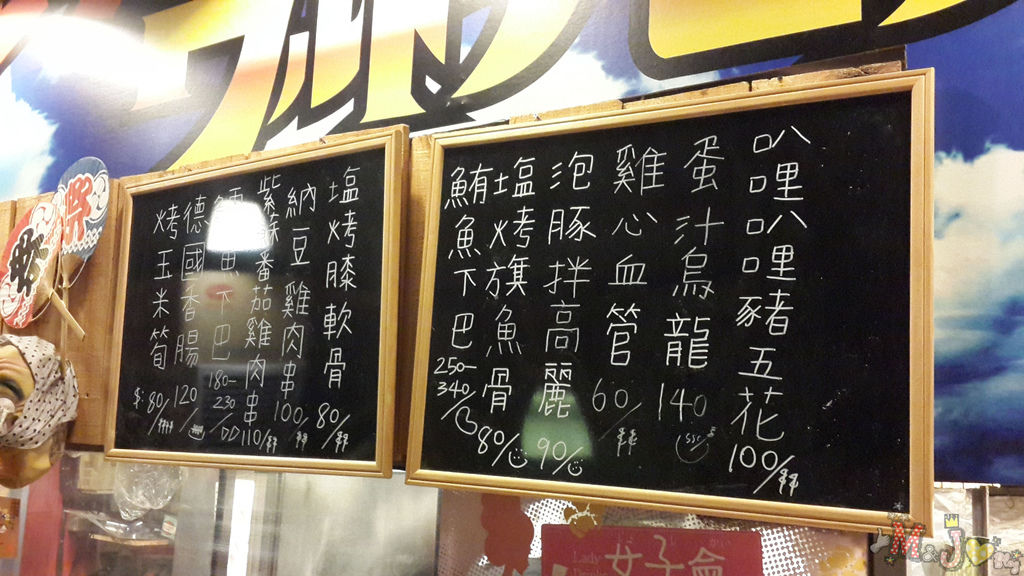 叭哩叭哩豬五花 100/串
蛋汁烏龍 140
雞心血管 60/串
泡豚拌高麗 90/
塩烤旗魚骨 80/
鮪魚下巴 250-340/
塩烤膝軟骨 80/串
納豆雞肉串 100/串
紫蘇番茄雞肉串 110/串
魚下巴 180-230
德國香腸 120
烤玉米筍 $:80/
女子會
MaJ